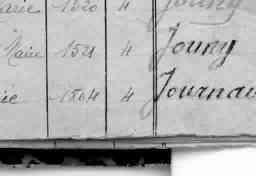 arie 1520 4 Jouny
Marie 1521 4 Jouny
ie 1504 4 Journau